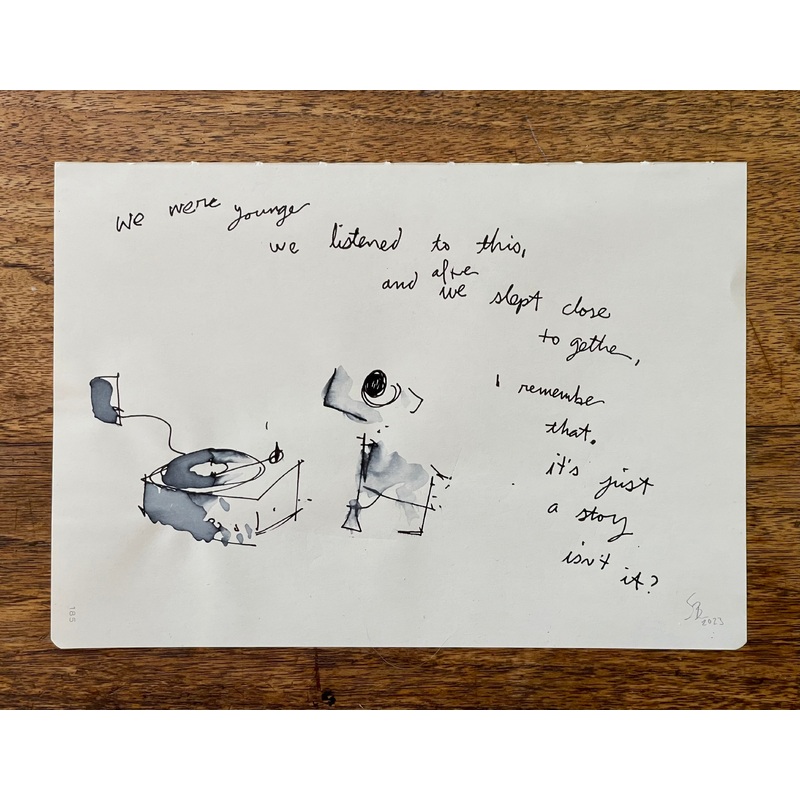 we were younger
we listened to this,
and after
we slept close
together,
I remember
that.
it's just
a story
isn't it?
SB 2023
185